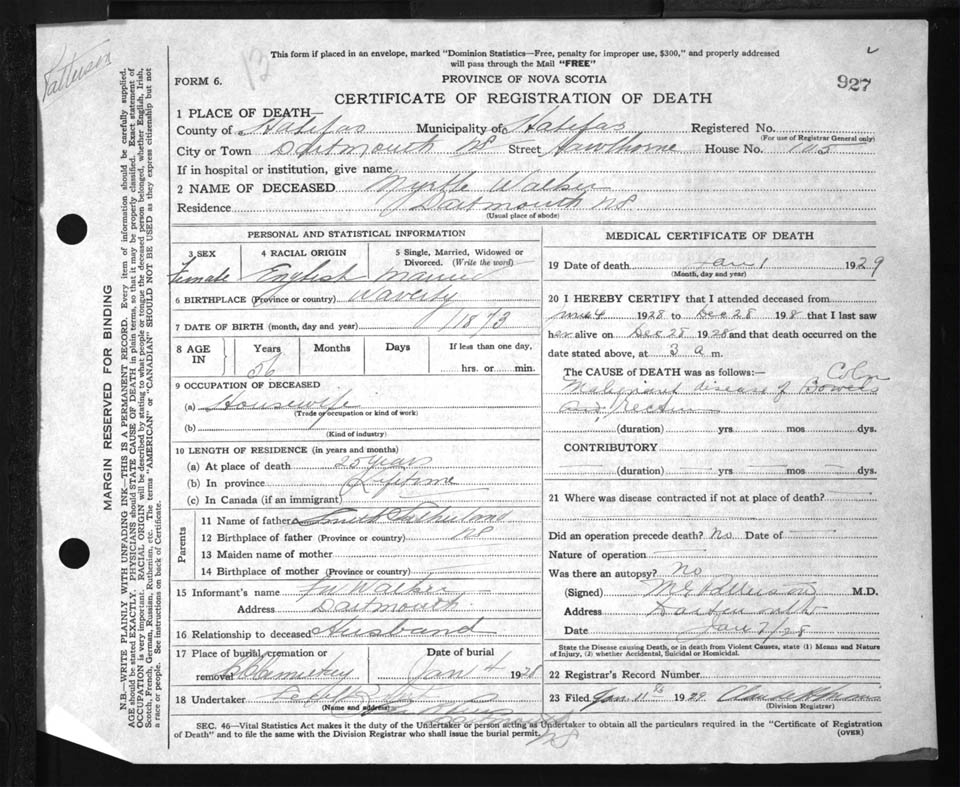 Patterson
12
This form if placed in an envelope, marked "Dominion Statistics—Free, penalty for improper use, $300," and properly addressed
will pass through the Mail "FREE"
FORM 6.
PROVINCE OF NOVA SCOTIA
927
CERTIFICATE OF REGISTRATION OF DEATH
1 PLACE OF DEATH—
County of Halifax Municipality of Halifax Registered No.
(For use of Registrar General only)
City or Town Dartmouth NS Street Hawthorne House No. 105
If in hospital or institution, give name
2 NAME OF DECEASED Myrtle Walker
Residence Dartmouth NS
(Usual place of abode)
PERSONAL AND STATISTICAL INFORMATION
3 SEX 4 RACIAL ORIGIN 5 Single, Married, Widowed or Divorced. (Write the word)
Female English Married
6 BIRTHPLACE (Province or country) Waverly
7 DATE OF BIRTH (month, day and year) 1873
8 AGE IN Years Months Days If less than one day,
56 hrs. or min.
9 OCCUPATION OF DECEASED
(a) Housewife
(Trade or occupation or kind of work)
(b)
(Kind of industry)
10 LENGTH OF RESIDENCE (in years and months)
(a) At place of death 25 years
(b) In province Lifetime
(c) In Canada (if an immigrant)
Parents
11 Name of father Sutherland
12 Birthplace of father (Province or country) NS
13 Maiden name of mother
14 Birthplace of mother (Province or Country)
15 Informant's name Walker
Address Dartmouth
16 Relationship to deceased Husband
17 Place of burial, cremation or removal Date of burial
Jan 4 1928
18 Undertaker
(Name and address)
NS
MEDICAL CERTIFICATE OF DEATH
19 Date of death Jan 1 1929
(Month, day and year)
20 I HEREBY CERTIFY that I attended deceased from
1928 to Dec 28 1928 that I last saw
her alive on Dec 28 1928 and that death occurred on
date stated above, at 3 a m.
The CAUSE of DEATH was as follows:— Colon
Malignant disease of Bowels
and rectum
(duration) yrs mos dys.
CONTRIBUTORY
(duration) yrs mos dys.
21 Where was disease contracted if not at place of death?
Did an operation precede death? No Date of
Nature of operation
Was there an autopsy? No
(Signed) M.D.
Address Dartmouth
Date Jan 2/28
State the Disease causing Death, or in death from Violent Causes, state (1) Means and Nature
of Injury, (2) whether Accidental, Suicidal or Homicidal.
22 Registrar's Record Number
23 Filed Jan. 11th 1929
(Division Registrar)
SEC. 46—Vital Statistics Act makes it the duty of the Undertaker or person acting as Undertaker to obtain all the particulars required in the "Certificate of Registration
of Death" and to file the same with the Division Registrar who shall issue the burial permit.
(OVER)
MARGIN RESERVED FOR BINDING
N.B.—WRITE PLAINLY WITH UNFADING INK—THIS IS A PERMANENT RECORD. Every item of information should be carefully supplied.
AGE should be stated EXACTLY. PHYSICIANS should STATE CAUSE OF DEATH in plain terms, so that it may be properly classified. Exact statement of
OCCUPATION is very important. RACIAL ORIGIN will be described by stating to what people or tongue the deceased person belonged, whether English, Irish,
Scotch, French, German, Russian, Ruthenian, etc. The terms "AMERICAN" or "CANADIAN" SHOULD NOT BE USED as they express citizenship but not
a race or people. See instructions on back of Certificate.